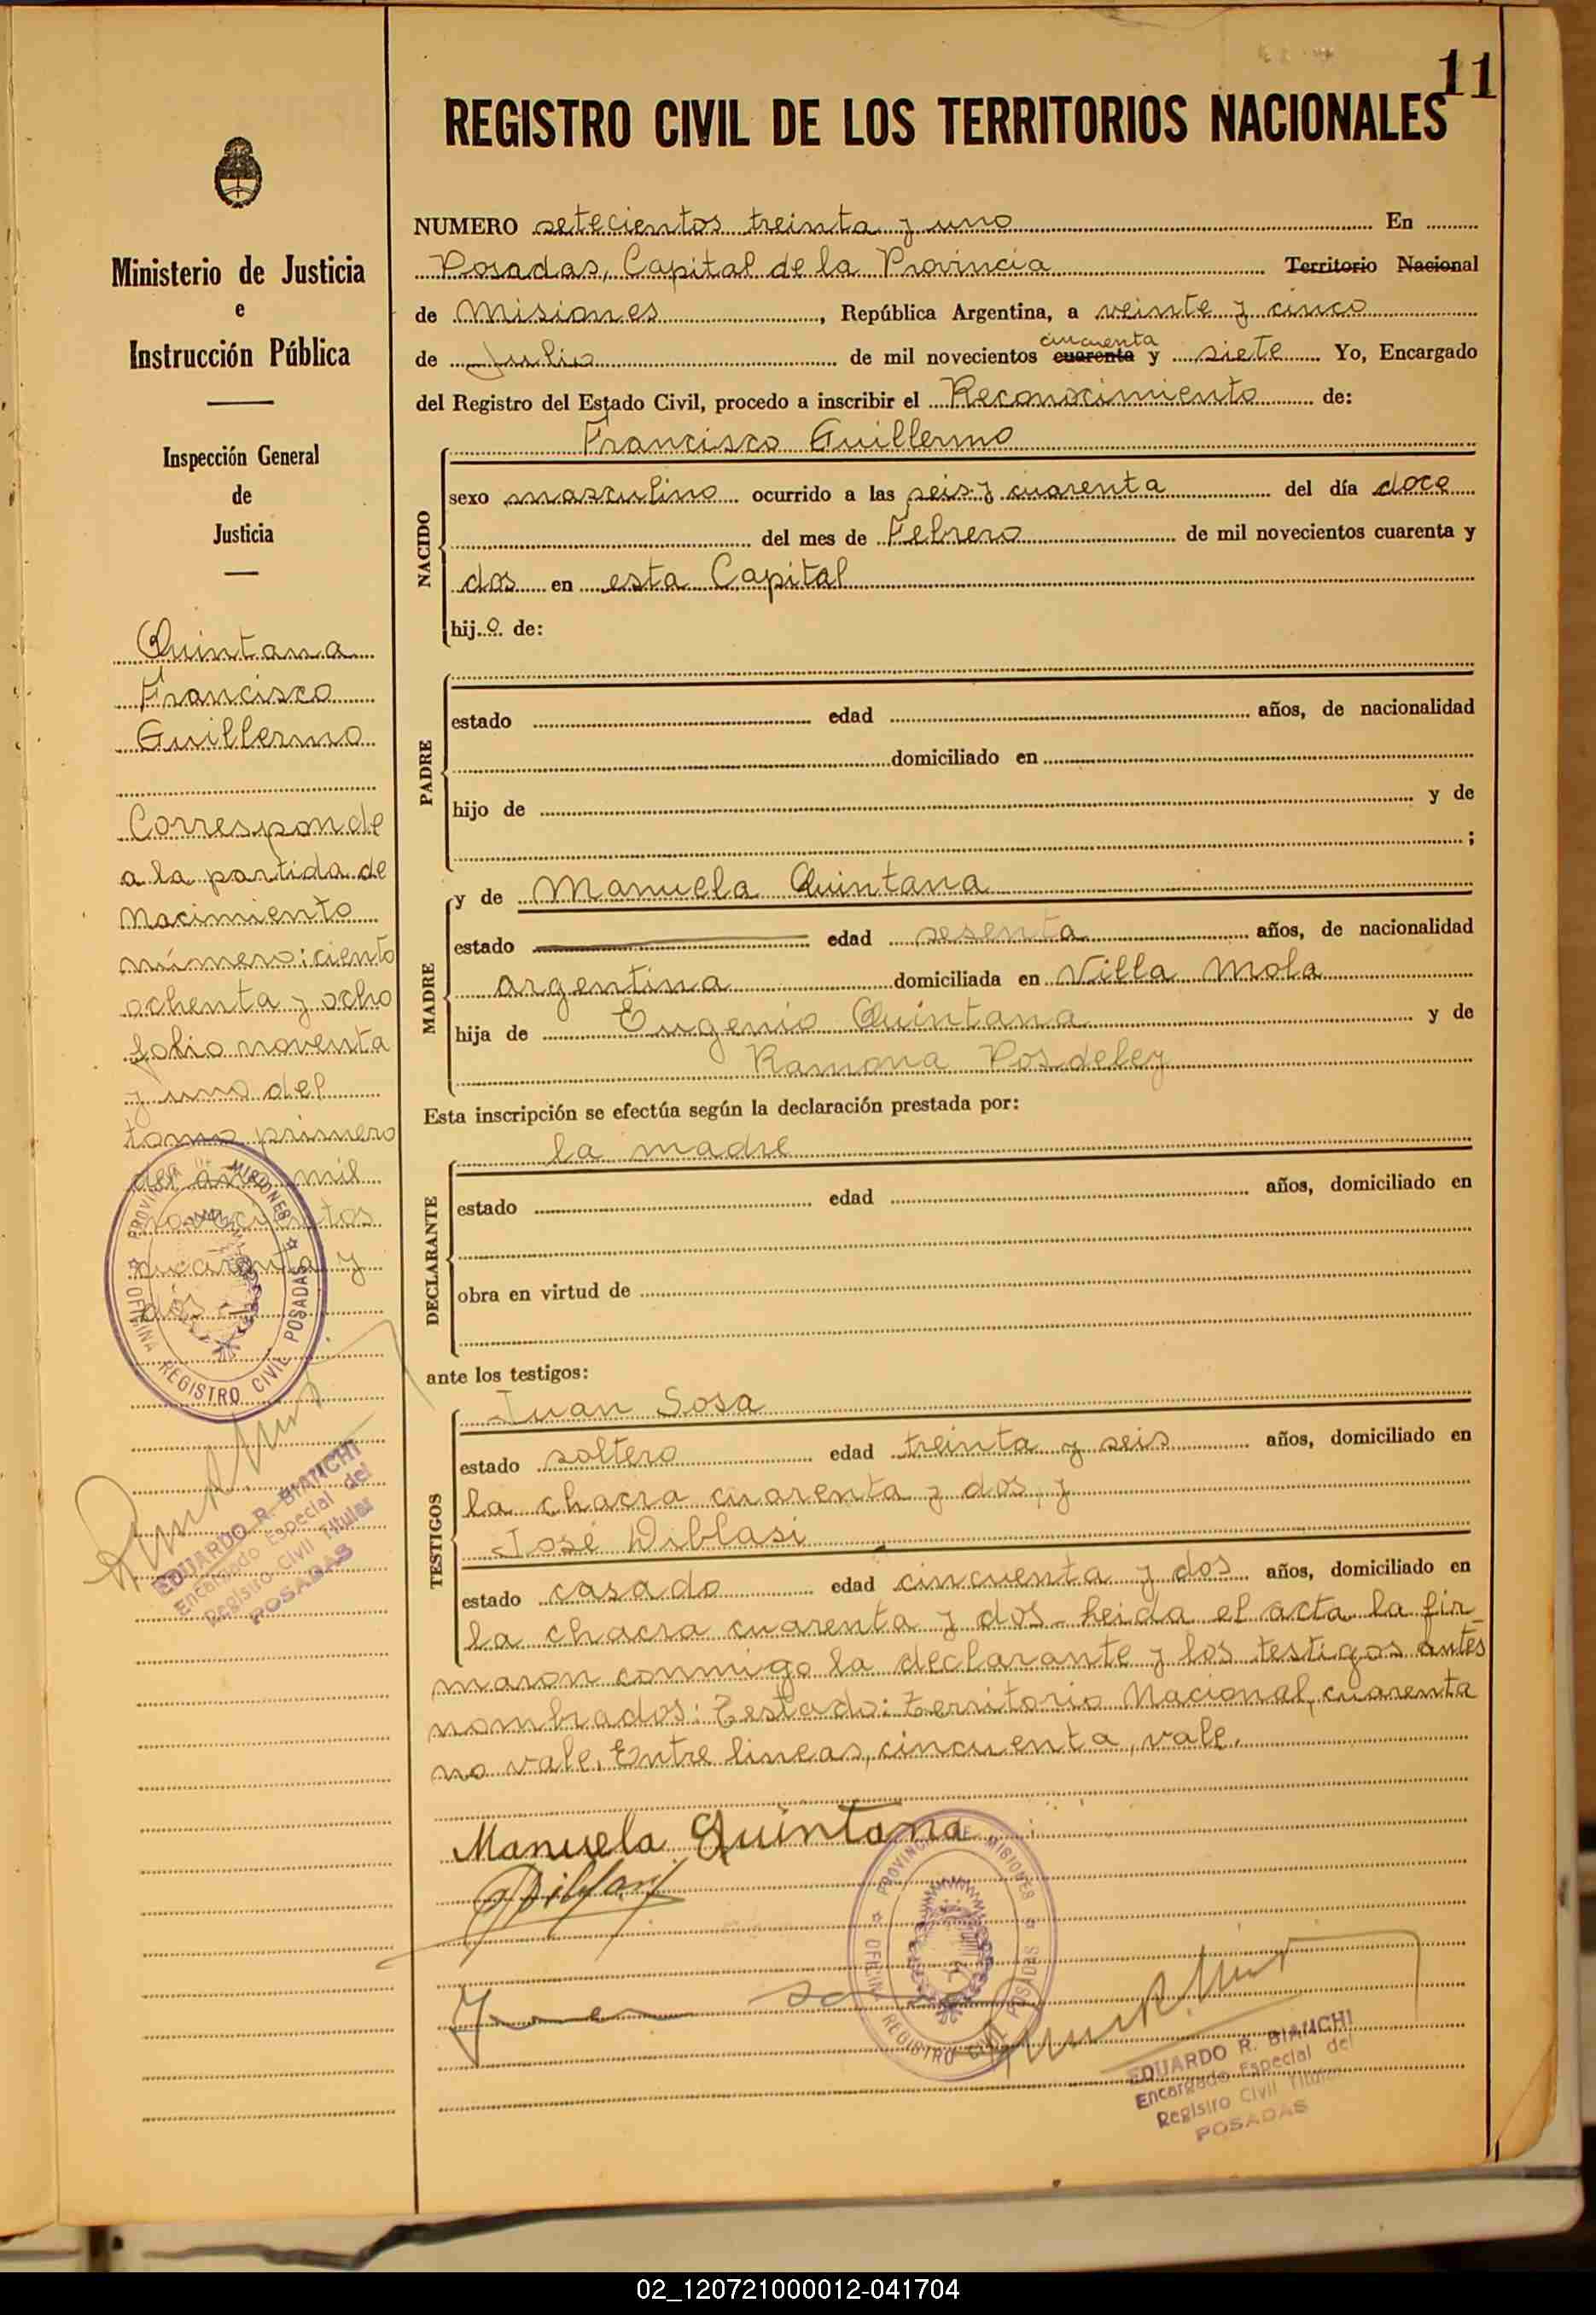 11
REGISTRO CIVIL DE LOS TERRITORIOS NACIONALES
Ministerio de Justicia
e
Instrucción Pública
Inspección General
de
Justicia
Quintana
Francisco
Guillermo
Corresponde
a la partida de
Nacimiento
número: ciento
ochenta y ocho
folio noventa
y uno del
tomo primero
del año mil
novecientos
cuarenta y
dos
PROVINCIA DE MISIONES
OFICINA REGISTRO CIVIL POSADAS
EDUARDO R. BIANCHI
Encargado Especial del
Registro Civil Titular
POSADAS
NUMERO setecientos treinta y uno En
Posadas, Capital de la Provincia Territorio Nacional
de Misiones, República Argentina, a veinte y cinco
cincuenta
de Julio de mil novecientos cuarenta y siete Yo, Encargado
del Registro del Estado Civil, procedo a inscribir el Reconocimiento de:
NACIDO
Francisco Guillermo
sexo masculino ocurrido a las seis y cuarenta del día doce
del mes de Febrero de mil novecientos cuarenta y
dos en esta Capital
hijo de:
PADRE
estado edad años, de nacionalidad
domiciliado en
hijo de y de
;
MADRE
y de Manuela Quintana
estado edad sesenta años, de nacionalidad
argentina domiciliada en Villa Mola
hija de Eugenio Quintana y de
Ramona Posdeley
Esta inscripción se efectúa según la declaración prestada por:
DECLARANTE
la madre
estado edad años, domiciliado en
obra en virtud de
ante los testigos:
TESTIGOS
Juan Sosa
estado soltero edad treinta y seis años, domiciliado en
la chacra cuarenta y dos, y
José Diblasi
estado casado edad cincuenta y dos años, domiciliado en
la chacra cuarenta y dos. Leida el acta la fir-
maron conmigo la declarante y los testigos antes
nombrados: Testado: Territorio Nacional, cuarenta
no vale. Entre lineas, cincuenta, vale.
Manuela Quintana
PROVINCIA DE MISIONES
OFICINA REGISTRO CIVIL POSADAS
EDUARDO R. BIANCHI
Encargado Especial del
Registro Civil Titular
POSADAS
02_120721000012-041704